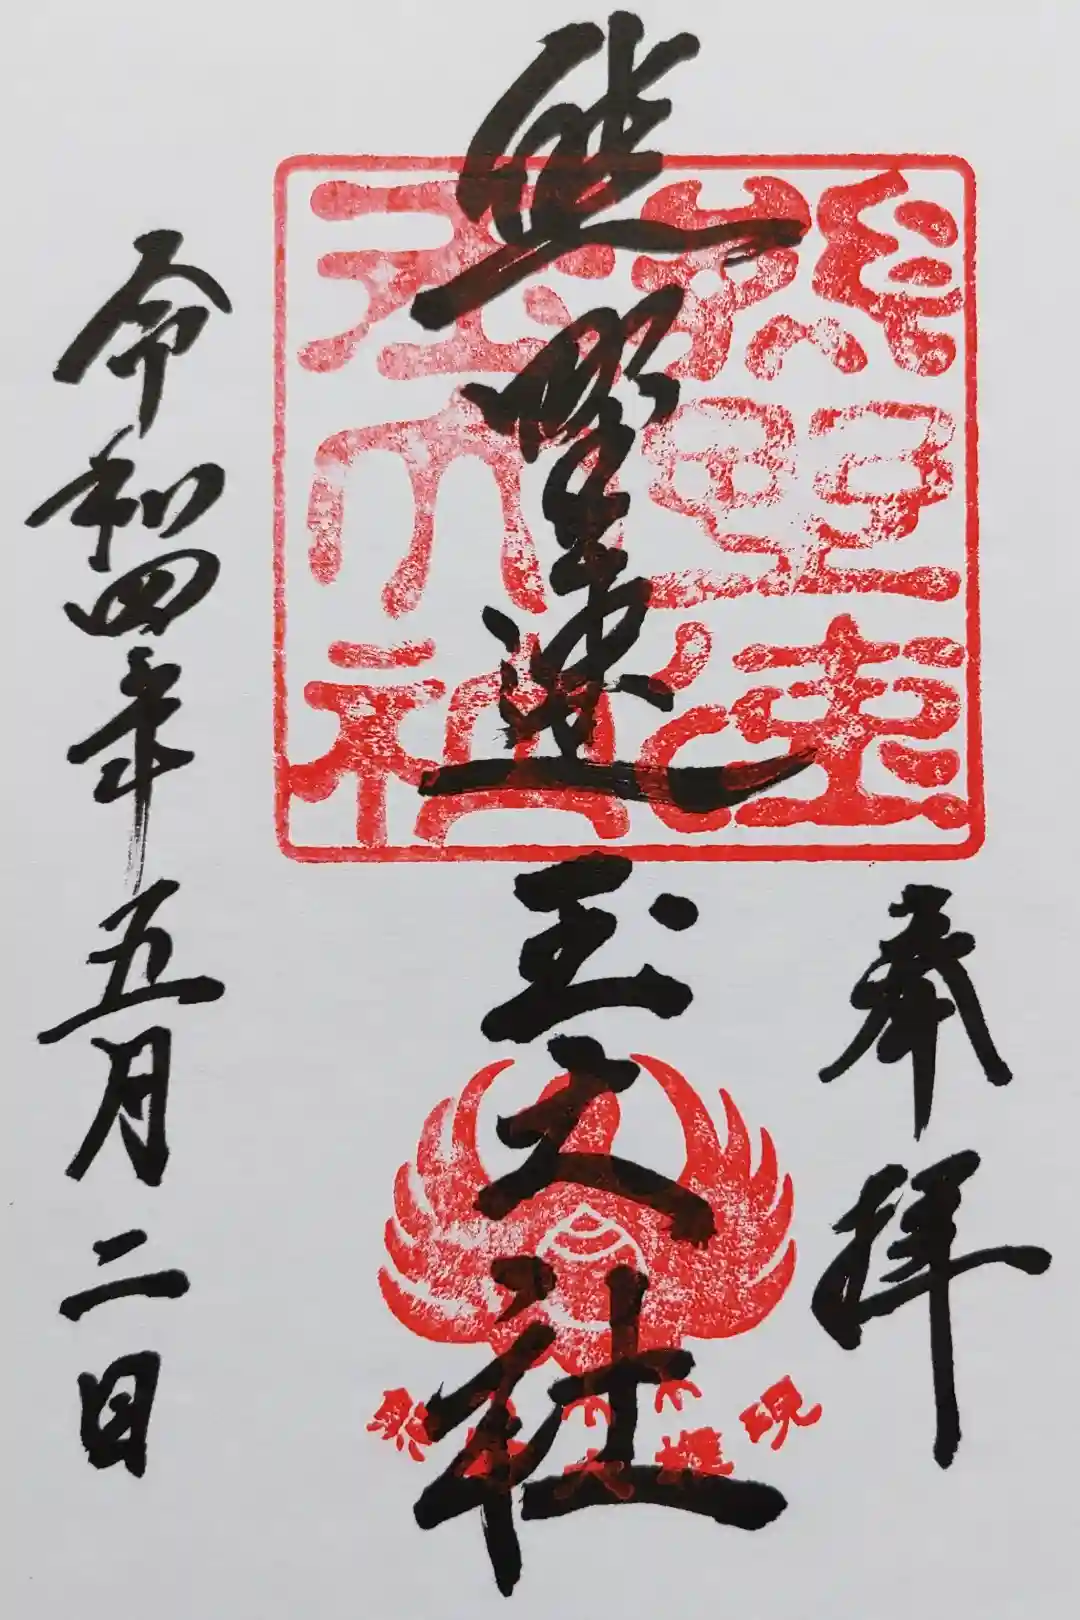 奉拝
熊野速玉大社
令和四年五月二日
熊野速玉大社
熊野大權現